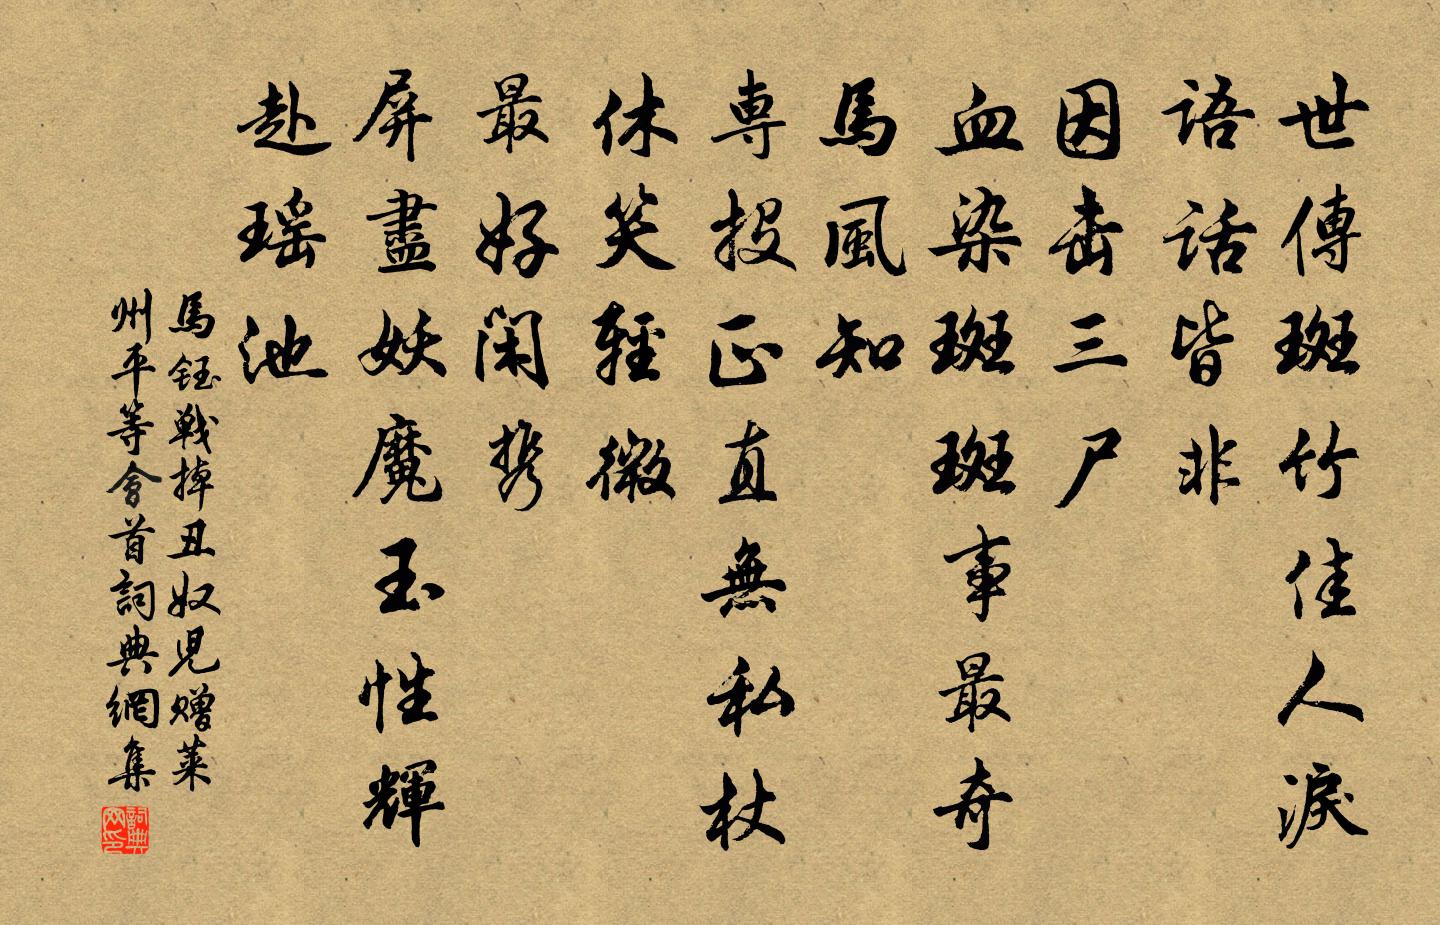 世傳斑竹佳人淚
語話皆非
因击三尸
血染斑斑事最奇
馬風知
専投正直無私杖
休笑輕微
最好閑携
屏盡妖魔玉性輝
赴瑶池
馬鈺戦掉丑奴児贈萊
州平等會首詞典網集
詞典网印